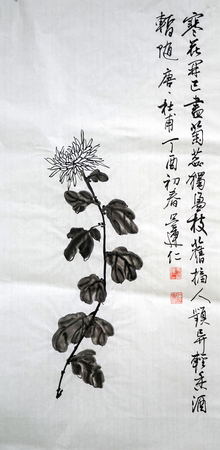 寒花開已盡菊蕊獨盈枝舊摘人頻异輕香酒
暫随唐·杜甫丁酉初春蓮仁